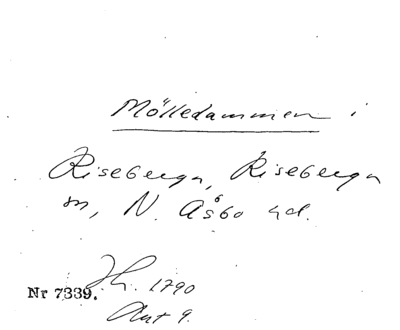 Mölledammen i
Riseberga, Riseberga
sn, N. Åsbo hd.
Nr 7339.
1790
Akt 9.